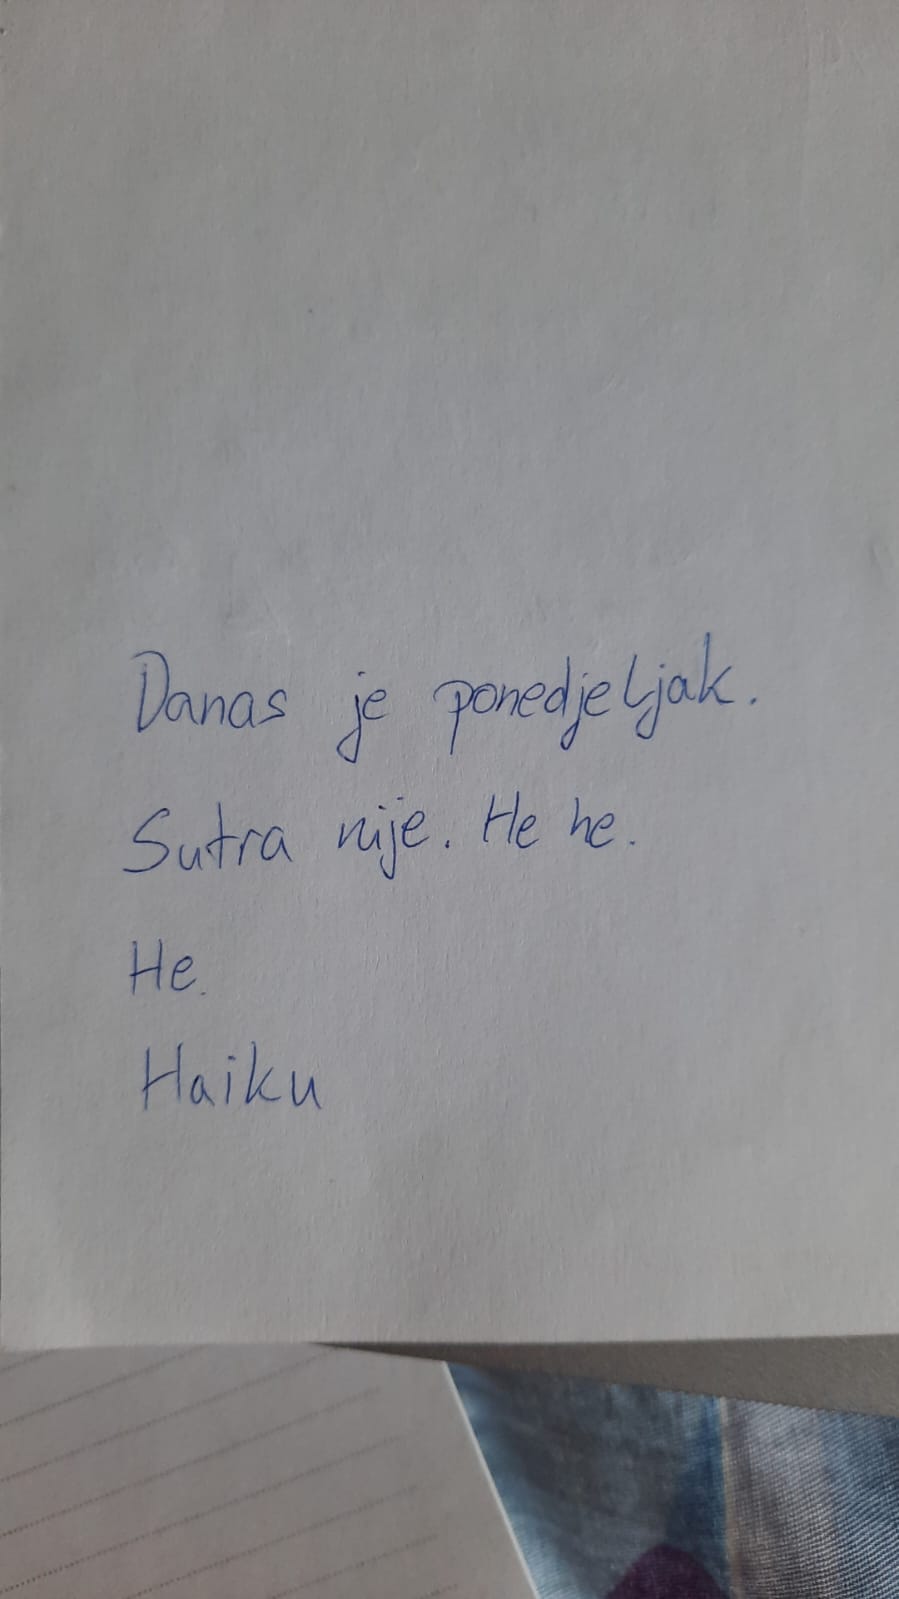 Danas je ponedjeljak.
Sutra nije. He he.
He.
Haiku